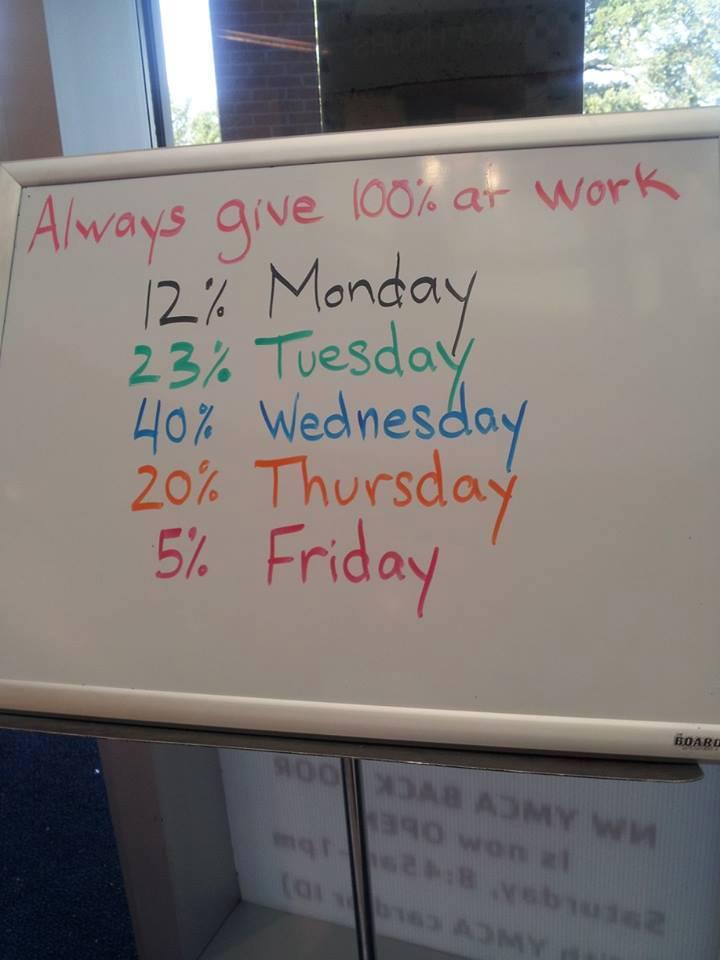 Always give 100% at work
12% Monday
23% Tuesday
40% Wednesday
20% Thursday
5% Friday
BOARD
NW YMCA BACK
is now OPEN
Saturday, 8:45am-1pm
YMCA card or ID)